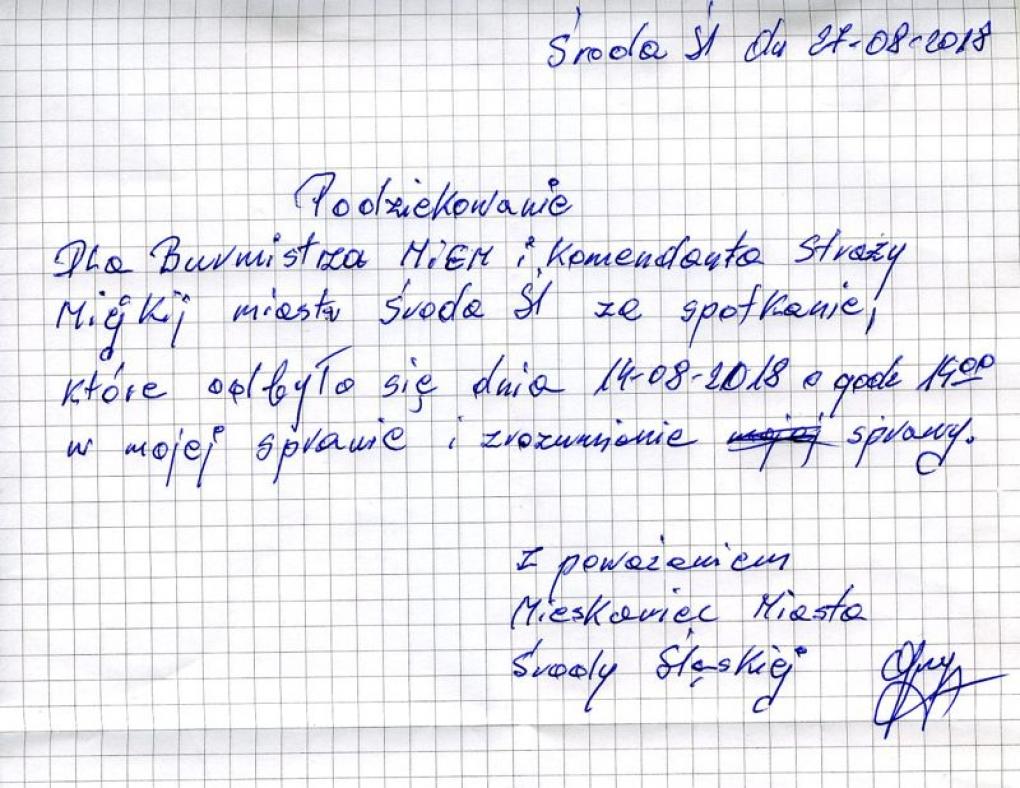 Środa Śl dn 27-08-2018
Podziekowanie
Dla Burmistrza MiEM i Komendanta Straży
Miejkij miasta Środa Śl za spotkanie,
które odbyło się dnia 14-08-2018 o godz 14 00
w mojej sprawie i zrozumienie sprawy.
Z poważaniem
Mieskaniec Miasta
Środy Śląskiej